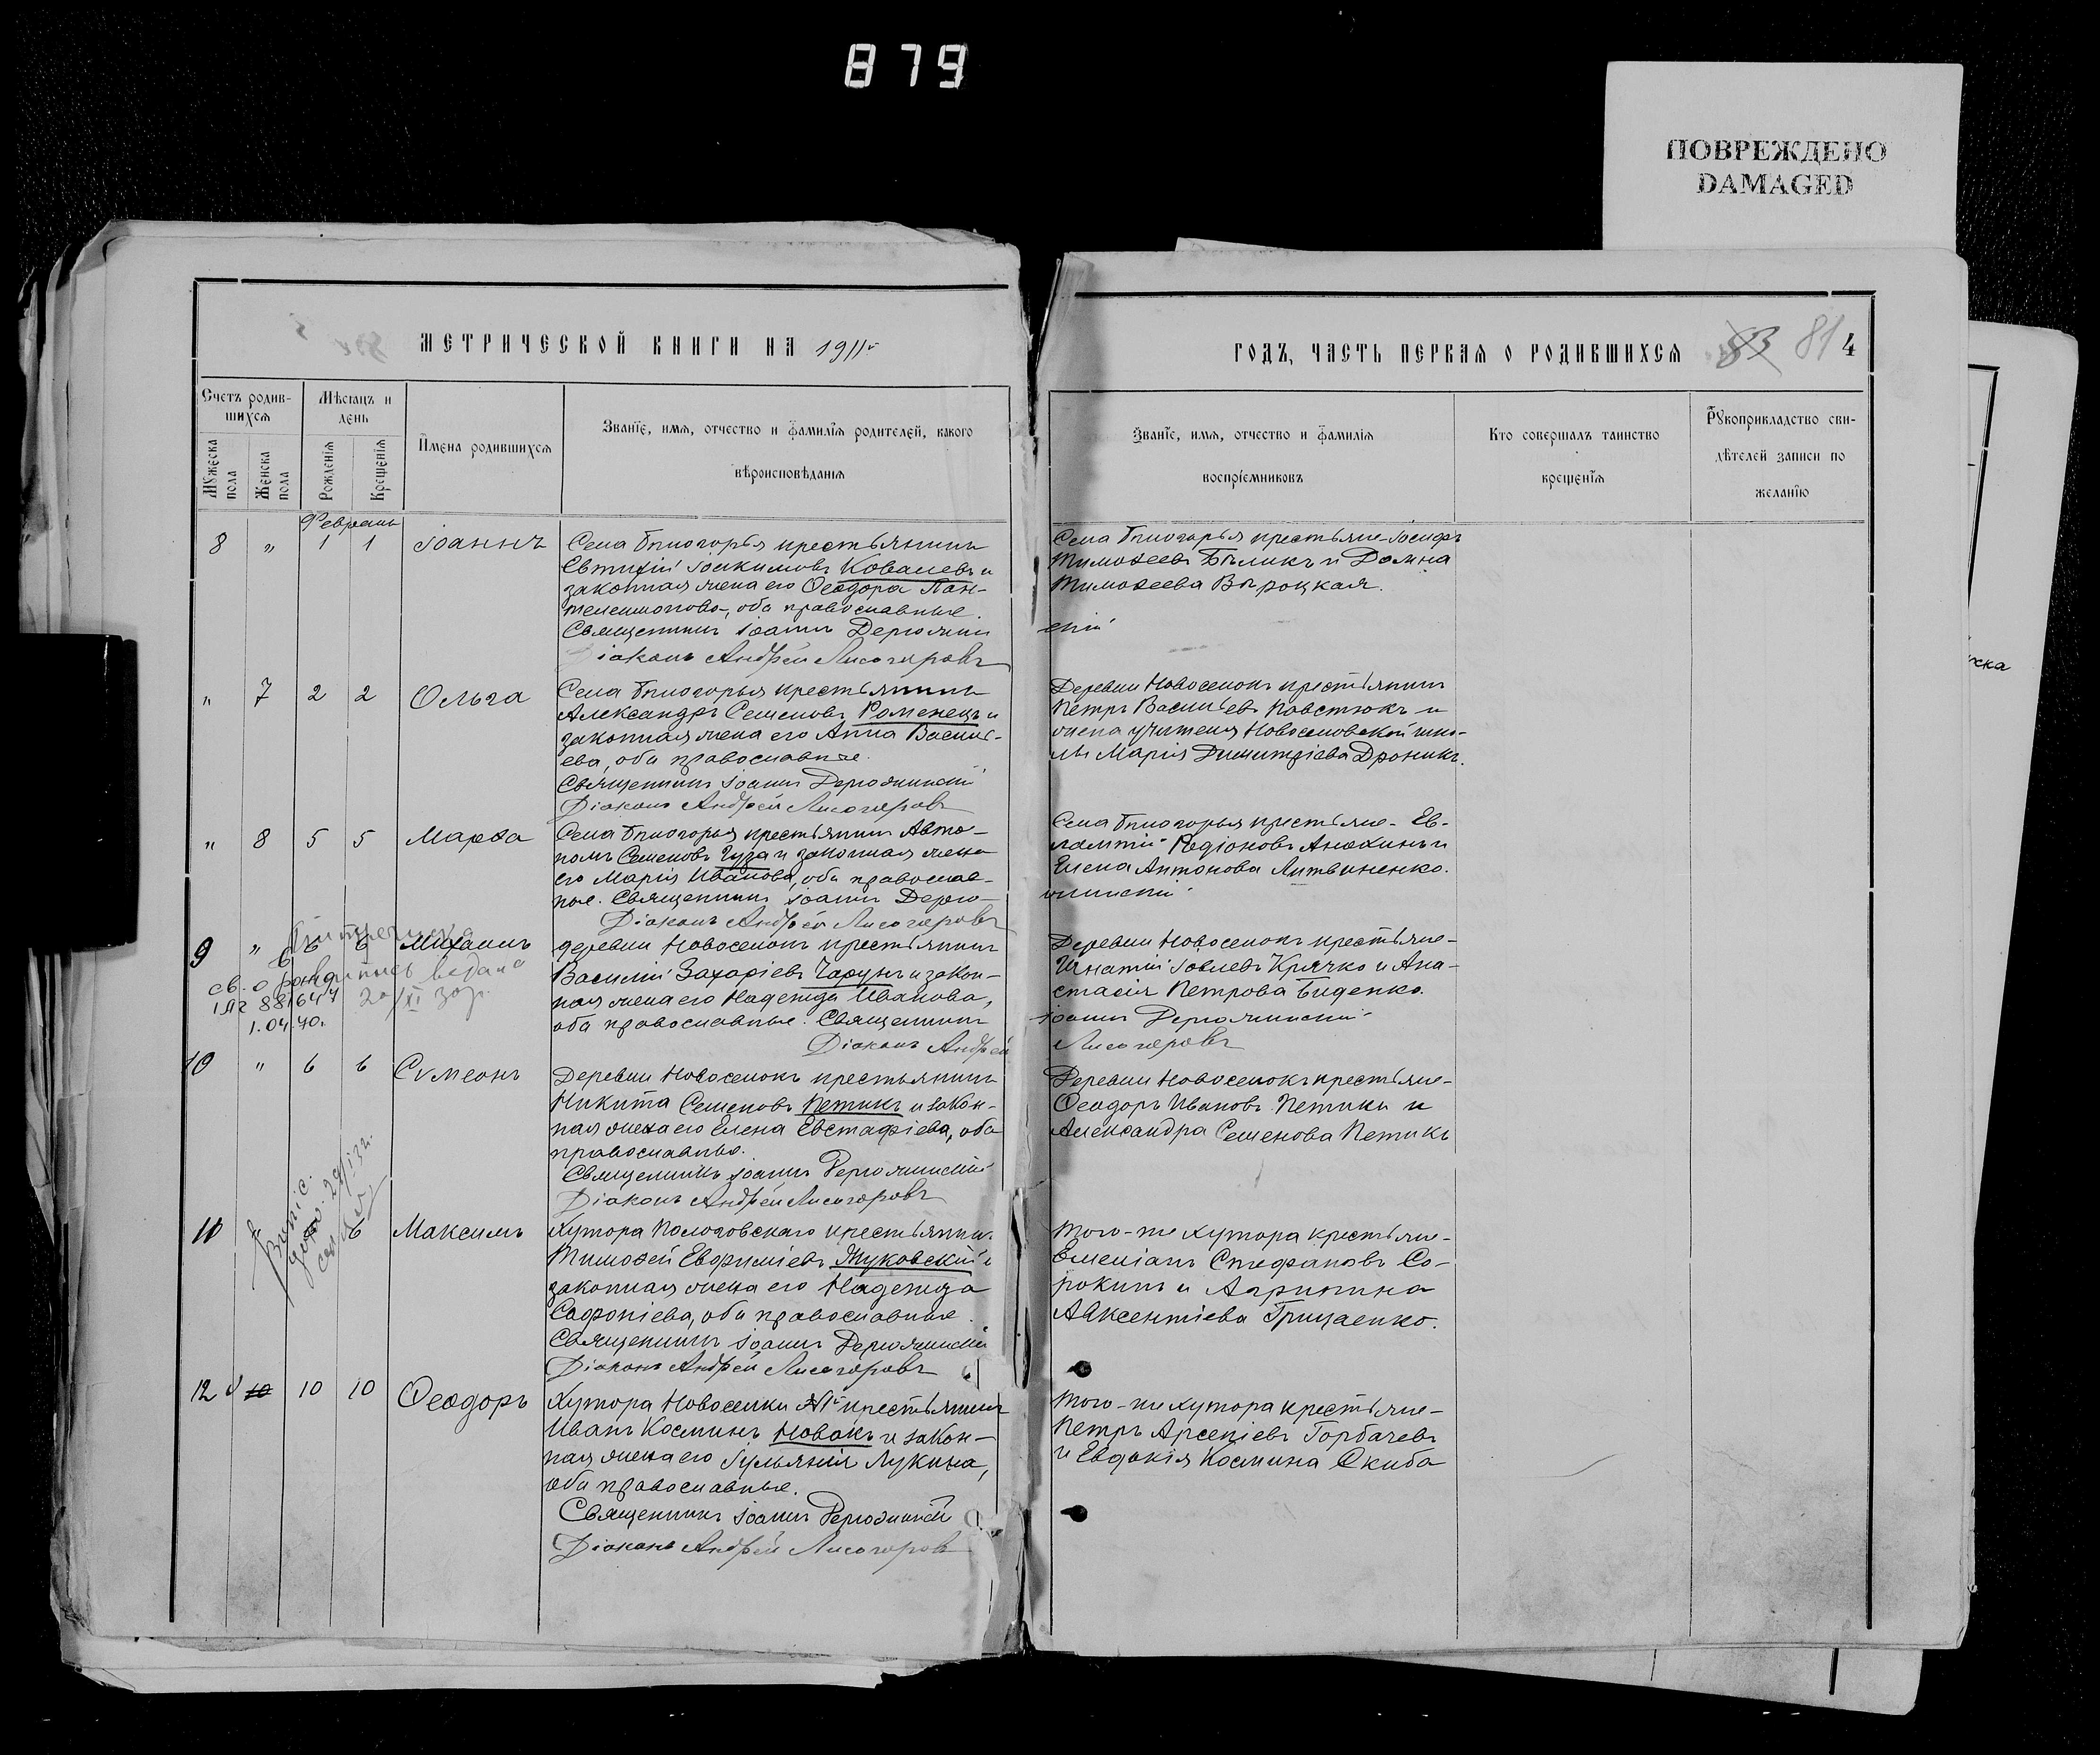 879
ПОВРЕЖДЕНО
DAMAGED
МЕТРИЧЕСКОЙ КНИГИ НА 1911г
Счетъ родив-
шихся
Мѣсяцъ и
день
Мужеска
пола
Женска
пола
Рожденія
Крещенія
Имена родившихся
Званіе, имя, отчество и фамилія родителей, какого
вѣроисповѣданія
Февраль
8 " 1 1 Іоаннъ
Села Бѣлогорья крестьянинъ
Евтихій Іоакимовъ Ковалевъ и
законная жена его Ѳеодора Пан-
телеимонова, оба православные.
Священникъ Іоаннъ
Діаконъ Андрей Лисогоровъ
" 7 2 2 Ольга
Села Бѣлогорья крестьянинъ
Александръ Семеновъ Роменецъ и
законная жена его Анна Василь-
ева, оба православные.
Священникъ Іоаннъ
Діаконъ Андрей Лисогоровъ
" 8 5 5 Марѳа
Села Бѣлогорья крестьянинъ Авто-
номъ Семеновъ Гуза и законная жена
его Марія Иванова, оба православ-
ные. Священникъ Іоаннъ
Діаконъ Андрей Лисогоровъ
9 " 6 6 Михаилъ
св. о рожд
1.04.40.
деревни Новоселокъ крестьянинъ
Василій Захаріевъ Чарунъ и закон-
ная жена его Надежда Иванова,
оба православные. Священникъ
Діаконъ Андрей
10 " 6 6 Сѵмеонъ
Деревни Новоселокъ крестьянинъ
Никита Семеновъ Петикъ и закон-
ная жена его Елена Евстафіева, оба
православные.
Священникъ Іоаннъ
Діаконъ Андрей Лисогоровъ
11 6 Максимъ
Хутора Пологовскаго крестьянинъ
Тимоѳей Евфиміевъ Жуковскій и
законная жена его Надежда
Софоніева, оба православные.
Священникъ Іоаннъ
Діаконъ Андрей Лисогоровъ
12 10 10 10 Ѳеодоръ
Хутора Новоселки крестьянинъ
Иванъ Косминъ Новакъ и закон-
ная жена его Іуліанія Лукина,
оба православные.
Священникъ Іоаннъ
Діаконъ Андрей Лисогоровъ
ГОДЪ, ЧАСТЬ ПЕРВАЯ О РОДИВШИХСЯ
83 81 4
Званіе, имя, отчество и фамилія
воспріемниковъ
Кто совершалъ таинство
крещенія
Рукоприкладство сви-
дѣтелей записи по
желанію
Села Бѣлогорья крестьяне Іосифъ
Тимоѳеевъ Бѣликъ и Домна
Тимоѳеева Вѣроцкая.
Деревни Новоселокъ крестьянинъ
Петръ Васильевъ Повстюкъ и
жена учителя Новоселовской шко-
лы Марія Димитріева Дроникъ.
Села Бѣлогорья крестьяне- Ев-
лампій Родіоновъ Анохинъ и
Елена Антонова Литвиненко.
Деревни Новоселокъ крестьяне-
Игнатій Іовлевъ Крячко и Ана-
стасія Петрова Биденко.
Лисогоровъ
Деревни Новоселокъ крестьяне-
Ѳеодоръ Ивановъ Петикъ и
Александра Семенова Петикъ
Того-же хутора крестьяне-
Емеліанъ Стефановъ Со-
рокинъ и Агрипина
Авксентіева Грицаенко.
Того-же хутора крестьяне-
Петръ Арсеніевъ Горбачевъ
и Евдокія Космина Скиба